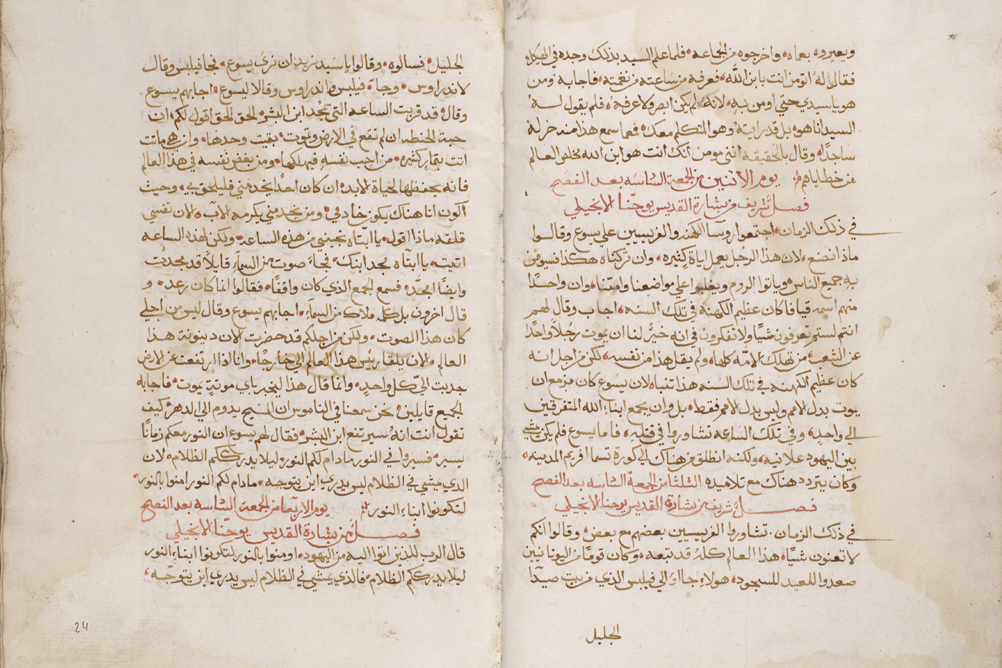 ويعيروه بعماه واخرجوه من الجماعه فلما علم السيد بذلك وجده في الهيكل
فقال له اتومن انت بابن الله فعرفه من ساعته من نغمته فاجابه ومن
هو ياسيدي حتي اومن به لانه لم يكن ابصر ولا عرفه فلم يقول له
السيد انا هو بل قد رايته وهو المتكلم معك فعما سمع هذا منه خر له
ساجدا وقال بالحقيقه انني يومن انك انت هو ابن الله مخلص العالم
من خطاياهم يوم الاتنين من الجمعة السادسه بعد الفصح
فصل شريف من بشارة القديس يوحنا الانجيلي
في ذلك الزمان اجتمعوا روسا الكهنه والفريسيين علي يسوع وقالوا
ماذا نصنع لان هذا الرجل يعمل اياة كثيره وان تركناه هكذا فسيومن
به جميع الناس وياتوا الروم ويغلبوا علي مواضعنا وامتنا وان واحدا
منهم اسمه قيافا كان عظيم الكهنه في تلك السنه اجاب وقال لهم
انتم لستم تعرفون شيا ولا تفكرون في انه خير لنا ان يموت رجلا واحدا
عن الشعب من تهلك الامه كلها ولم يقل هذا من نفسه لكن من اجل انه
كان عظيم الكهنه في تلك السنه هذا تنبا لان يسوع كان مزمع ان
يموت بدل الامم وليس بدل الامم فقط بل وان يجمع ابناء الله المتفرقين
الي واحد وفي تلك الساعه تشاوروا في قتله فاما يسوع فلم يكن يمشي
بين اليهود علانيه ولكنه انطلق من هناك الي كورة تسما افريم المدينه
وكان يتردد هناك مع تلاميذه الثلثا من الجمعة السادسه بعد الفصح
فصل شريف من بشارة القديس يوحنا الانجيلي
في ذلك الزمان تشاوروا الفريسيين بعضهم مع بعض وقالوا انكم
لا تغنون شيا هذا العالم كله قد تبعه وكان قوما من اليونانيين
صعدوا للعيد للسجود هولاء جااوا الي فيلبس الذي من بيت صيدا
الجليل
الجليل فسالوه وقالوا ياسيد نريد ان نري يسوع فجا فيلبس وقال
لاندراوس وجاء فيلبس واندراوس وقالا ليسوع اجابهم يسوع
وقال قد قربت الساعه التي يتمجد ابن البشر الحق الحق اقول لكم ان
حبة الحنطه ان لم تقع في الارض وتموت بقيت وحدها وان هي ماتت
اتت بثمار كثيره من احب نفسه فيهلكها ومن بغض نفسه في هذا العالم
فانه يحفظها لحياة الابد ان كان احدا يخدمني فليلحق بي وحيث
اكون انا هناك يكون خادمي ومن يخدمني يكرمه الاب الان نفسي
قلقه ماذا اقول يا ابتاه نجيني من هذه الساعه ولكن لهذه الساعه
اتيت يا ابتاه مجد ابنك فجاء صوت من السماء قايلا قد مجدت
وايضا امجد فسمع الجمع الذي كان واقفا فقالوا انما كان رعد و
قال اخرون بل كلمه ملاك من السماء اجابهم يسوع وقال ليس من اجلي
كان هذا الصوت ولكن من اجلكم قد حضرت الان دينونة هذا
العالم الان يلقا ريس هذا العالم الي خارجا وانا اذا ارتفعت عن الارض
جدبت الي كل واحد وانما قال هذا ليخبر باي موتة يموت فاجابه
الجمع قايلين نحن سمعنا في الناموس ان المسيح يدوم الي الدهر كيف
تقول انت انه سيرتفع ابن البشر فقال لهم يسوع ان النور معكم زمانا
يسير فسيروا في النور مادام لكم النور ليلا يدرككم الظلام لان
الذي يمشي في الظلام ليس يدري اين يتوجه مادام لكم النور امنوا بالنور
لتكونوا ابناء النور يوم الاربعا من الجمعة السادسه بعد الفصح
فصل من بشارة القديس يوحنا الانجيلي
قال الرب للذين اتوا اليه من اليهود امنوا بالنور لتكونوا ابناء النور
ليلا يدرككم الظلام فالذي يمشي في الظلام ليس يدري اين يتوجه
24